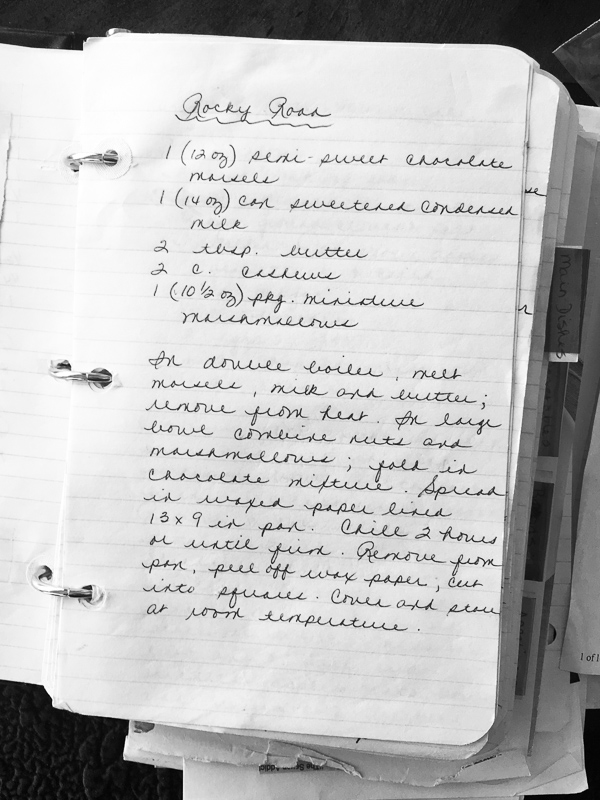 Rocky Road
1 (12 oz) semi-sweet chocolate
morsels
1 (14 oz) can sweetened condensed
milk
2 tbsp. butter
2 c. cashews
1 (10 1/2 oz) pkg. miniature
marshmallows
In double boiler, melt
morsels, milk and butter;
remove from heat. In large
bowl combine nuts and
marshmallows; fold in
chocolate mixture. Spread
in waxed paper lined
13 x 9 in pan. Chill 2 hours
or until firm. Remove from
pan, peel off wax paper; cut
into squares. Cover and store
at room temperature.
Main Dishes
1 of 1